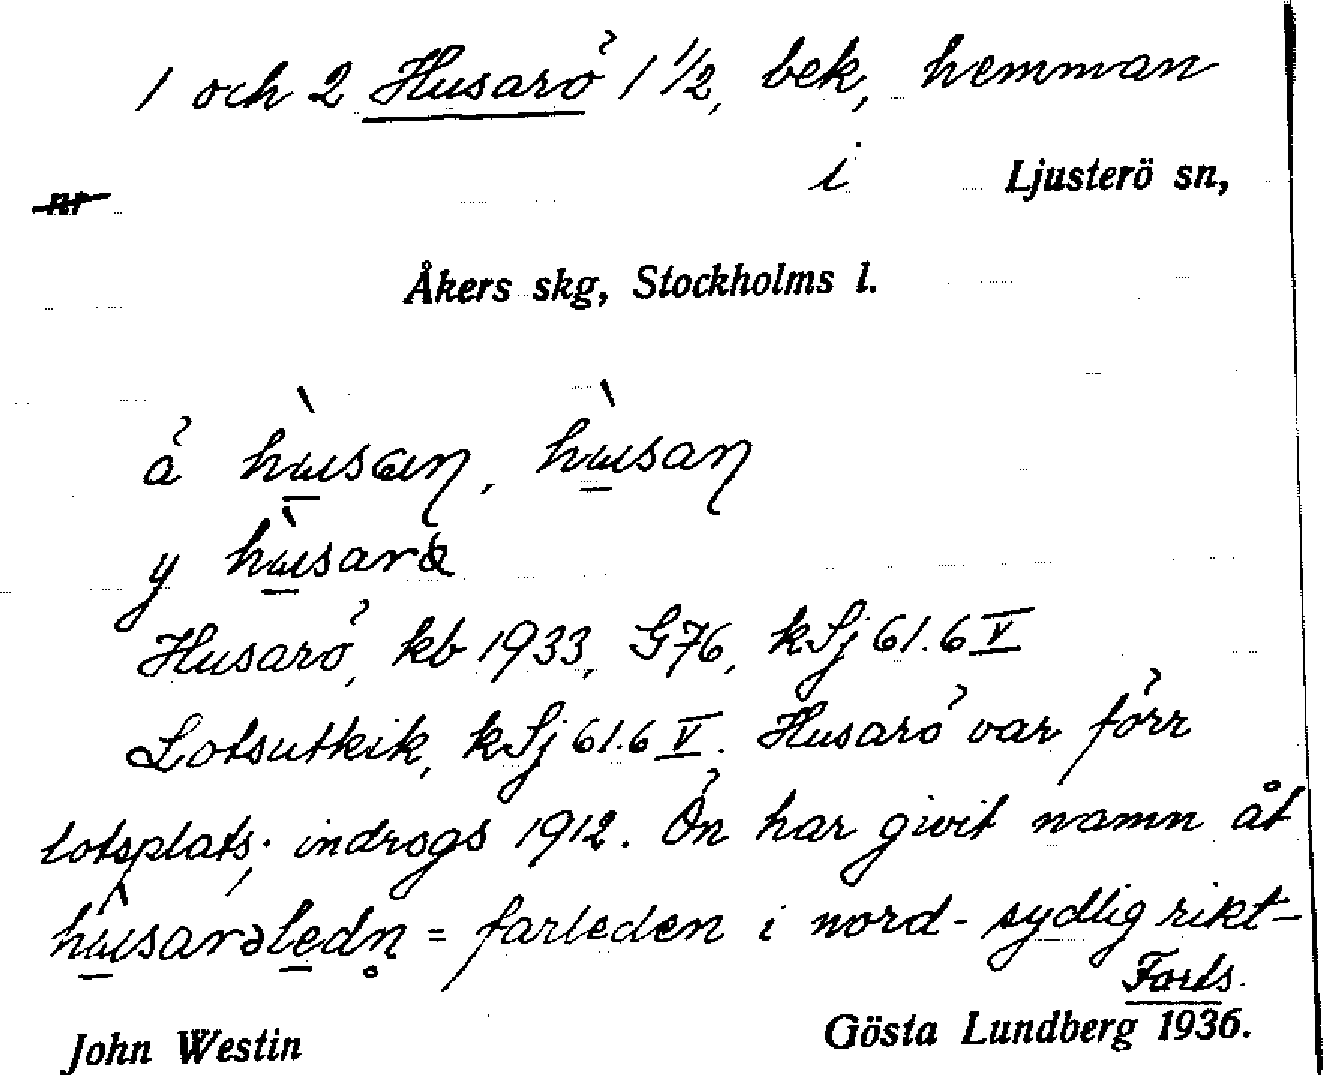 1 och 2 Husarö 1 1/2, bek, hemman
i Ljusterö sn,
nr
Åkers skg, Stockholms l.
å
y
Husarö, kb 1933, G76, kSj 61.6 V
Lotsutkik, kSj 61.6 V. Husarö var förr
lotsplats; indrogs 1912. Ön har givit namn åt
= farleden i nord-sydlig rikt-
Forts.
John Westin Gösta Lundberg 1936.